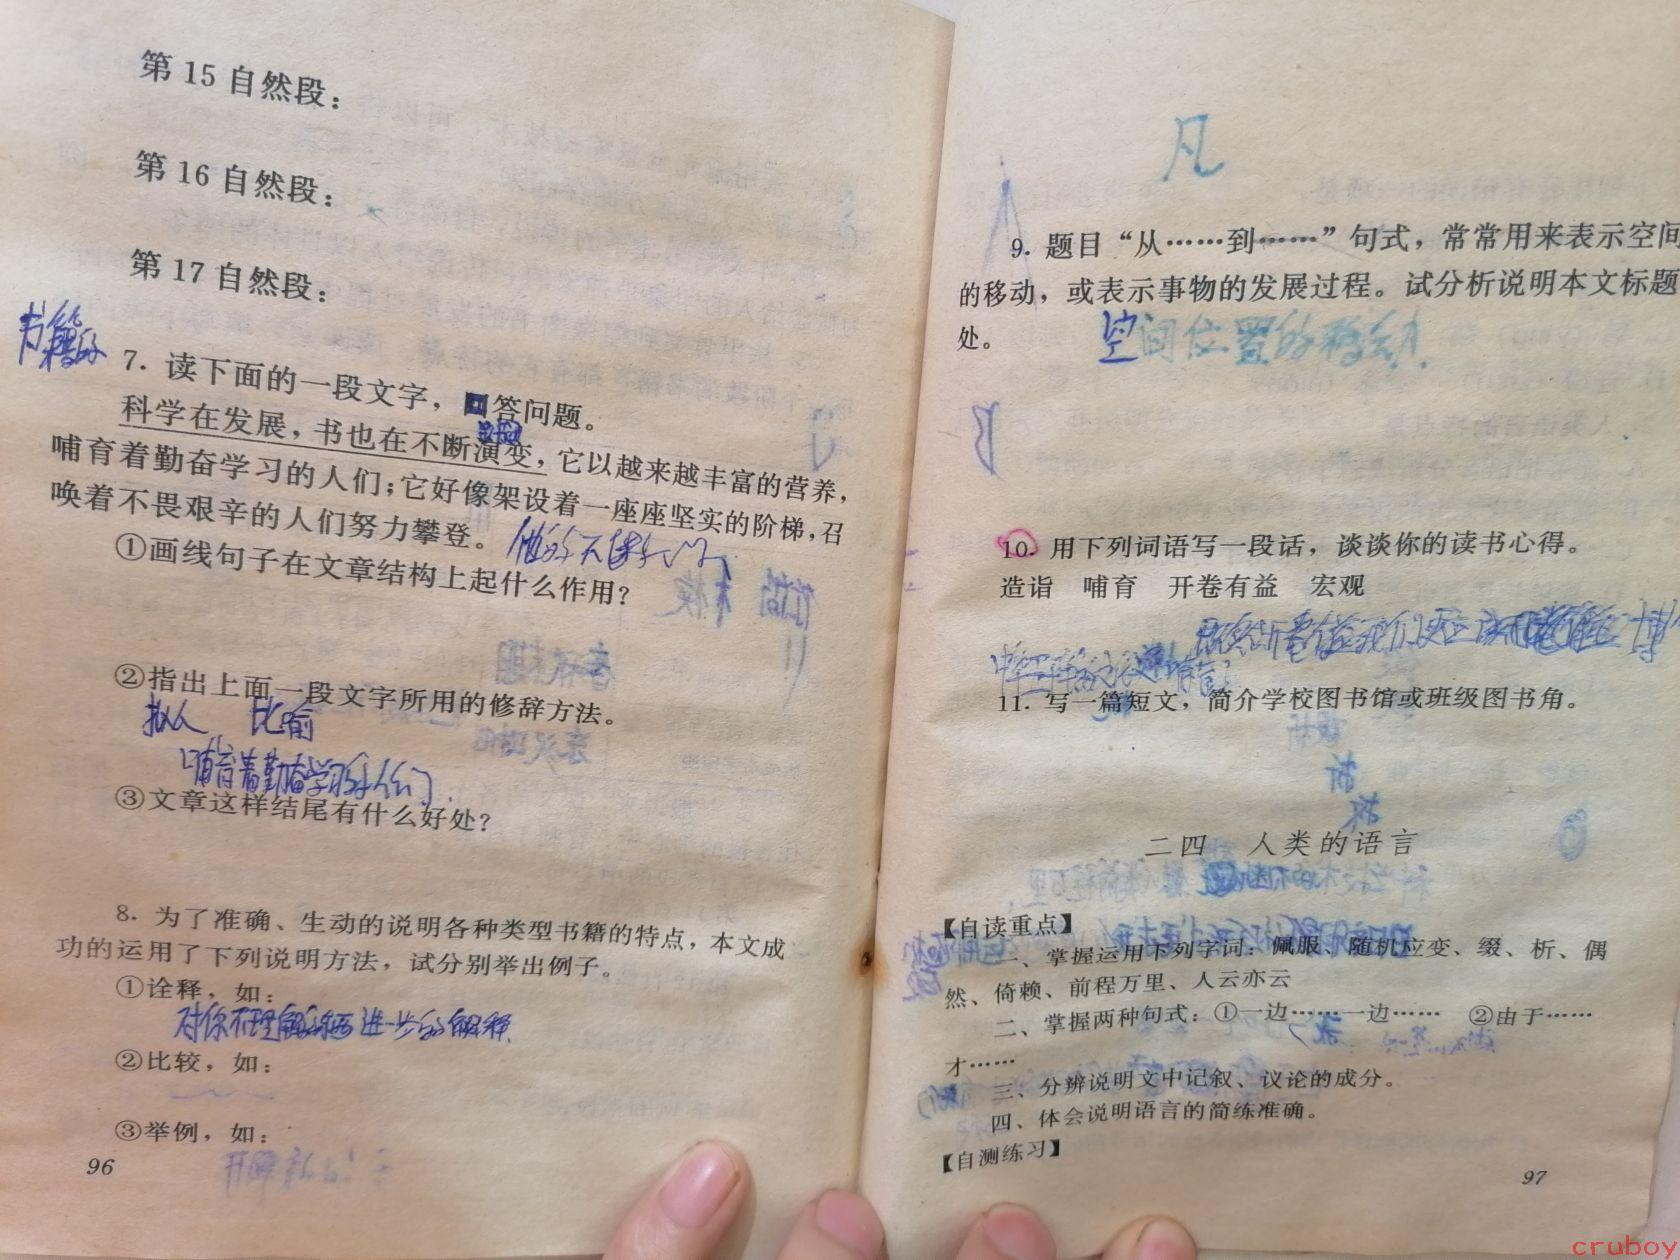 第 15 自然段：
第 16 自然段：
第 17 自然段：
书籍的
7. 读下面的一段文字，回答问题。
科学在发展，书也在不断演变，它以越来越丰富的营养，
哺育着勤奋学习的人们；它好像架设着一座座坚实的阶梯，召
唤着不畏艰辛的人们努力攀登。
①画线句子在文章结构上起什么作用？
②指出上面一段文字所用的修辞方法。
拟人 比喻
哺育着勤奋学习的人们
③文章这样结尾有什么好处？
8. 为了准确、生动的说明各种类型书籍的特点，本文成
功的运用了下列说明方法，试分别举出例子。
①诠释，如：
②比较，如：
③举例，如：
96
凡
9. 题目“从……到……”句式，常常用来表示空间
的移动，或表示事物的发展过程。试分析说明本文标题
处。
空间位置的移动
10. 用下列词语写一段话，谈谈你的读书心得。
造诣 哺育 开卷有益 宏观
11. 写一篇短文，简介学校图书馆或班级图书角。
二四 人类的语言
【自读重点】
一、掌握运用下列字词：佩服、随机应变、缀、析、偶
然、倚赖、前程万里、人云亦云
二、掌握两种句式：①一边……一边…… ②由于……
才……
三、分辨说明文中记叙、议论的成分。
四、体会说明语言的简练准确。
【自测练习】
97
cruboy